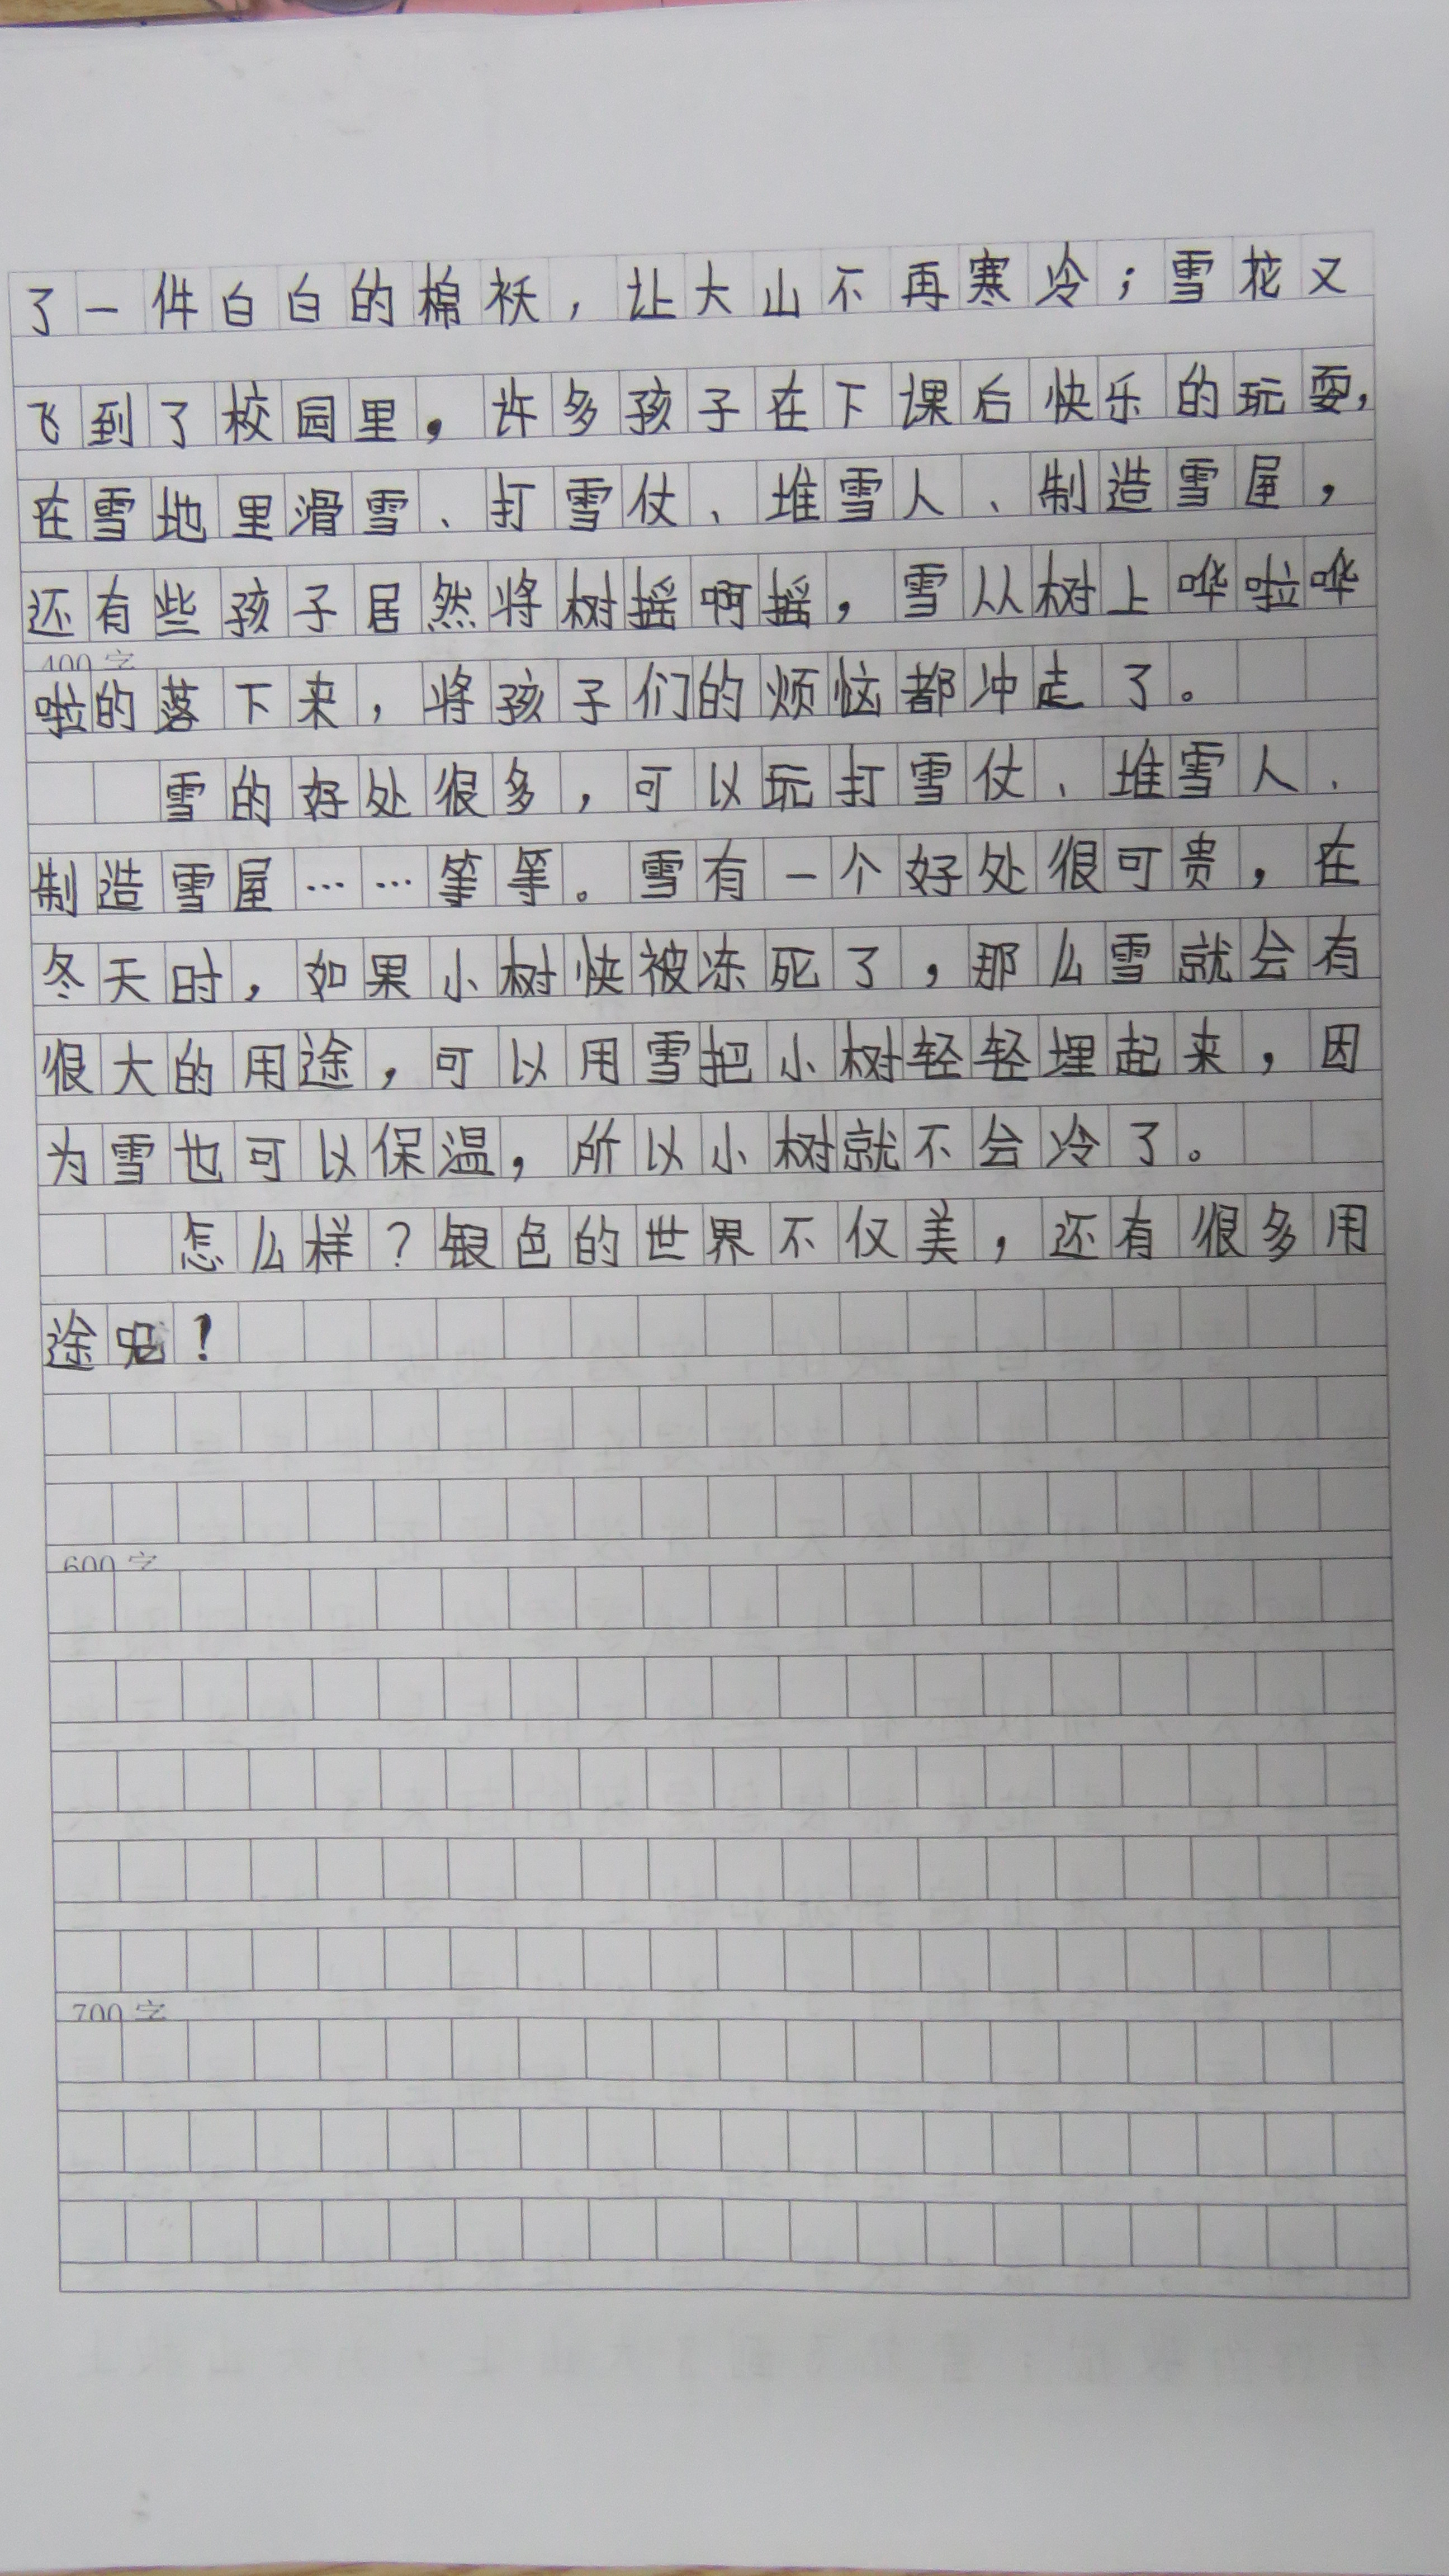 了一件白白的棉袄，让大山不再寒冷；雪花又
飞到了校园里，许多孩子在下课后快乐的玩耍，
在雪地里滑雪、打雪仗、堆雪人、制造雪屋，
还有些孩子居然将树摇啊摇，雪从树上哗啦哗
400字
啦的落下来，将孩子们的烦恼都冲走了。
雪的好处很多，可以玩打雪仗、堆雪人、
制造雪屋……等等。雪有一个好处很可贵，在
冬天时，如果小树快被冻死了，那么雪就会有
很大的用途，可以用雪把小树轻轻埋起来，因
为雪也可以保温，所以小树就不会冷了。
怎么样？银色的世界不仅美，还有很多用
途呢！
600字
700字